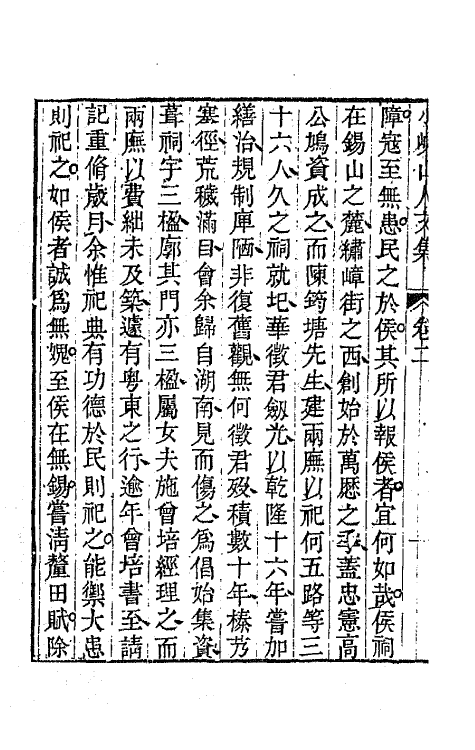 小峴山人文集 卷二
障寇至無患民之於侯其所以報侯者宜何如哉侯祠
在錫山之麓繡嶂街之西創始於萬厯之季蓋忠憲高
公鳩資成之而陳筠塘先生建兩廡以祀何五路等三
十六人久之祠就圮華徵君劒光以乾隆十六年嘗加
繕治規制庳陋非復舊觀無何徵君歿積數十年榛艿
塞徑荒穢滿目會余歸自湖南見而傷之爲倡始集資
葺祠宇三楹廓其門亦三楹屬女夫施曾培經理之而
兩廡以費絀未及築遽有粤東之行逾年曾培書至請
記重脩歲月余惟祀典有功德於民則祀之能禦大患
則祀之如侯者誠爲無媿至侯在無錫嘗淸釐田賦除